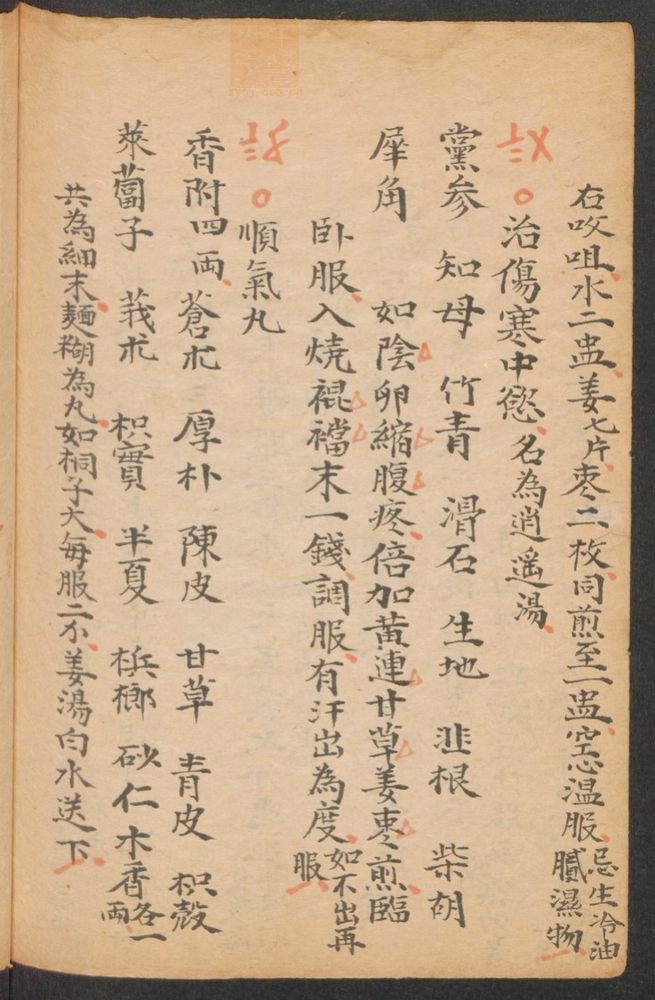 右㕮咀水二盅姜七片枣二枚同煎至一盅空心温服忌生冷油膩濕物
治傷寒中慾名為逍遥湯
黨参 知母 竹青 滑石 生地 韭根 柴胡
犀角 如陰卵縮腹疼倍加黄連甘草姜枣煎臨
卧服入燒裩襠末一錢調服有汗出為度如不出再服
順氣丸
香附四両 蒼朮 厚朴 陳皮 甘草 青皮 枳殼
萊菔子 莪朮 枳實 半夏 梹榔 砂仁 木香各一両
共為細末麵糊為丸如桐子大每服二不姜湯白水送下